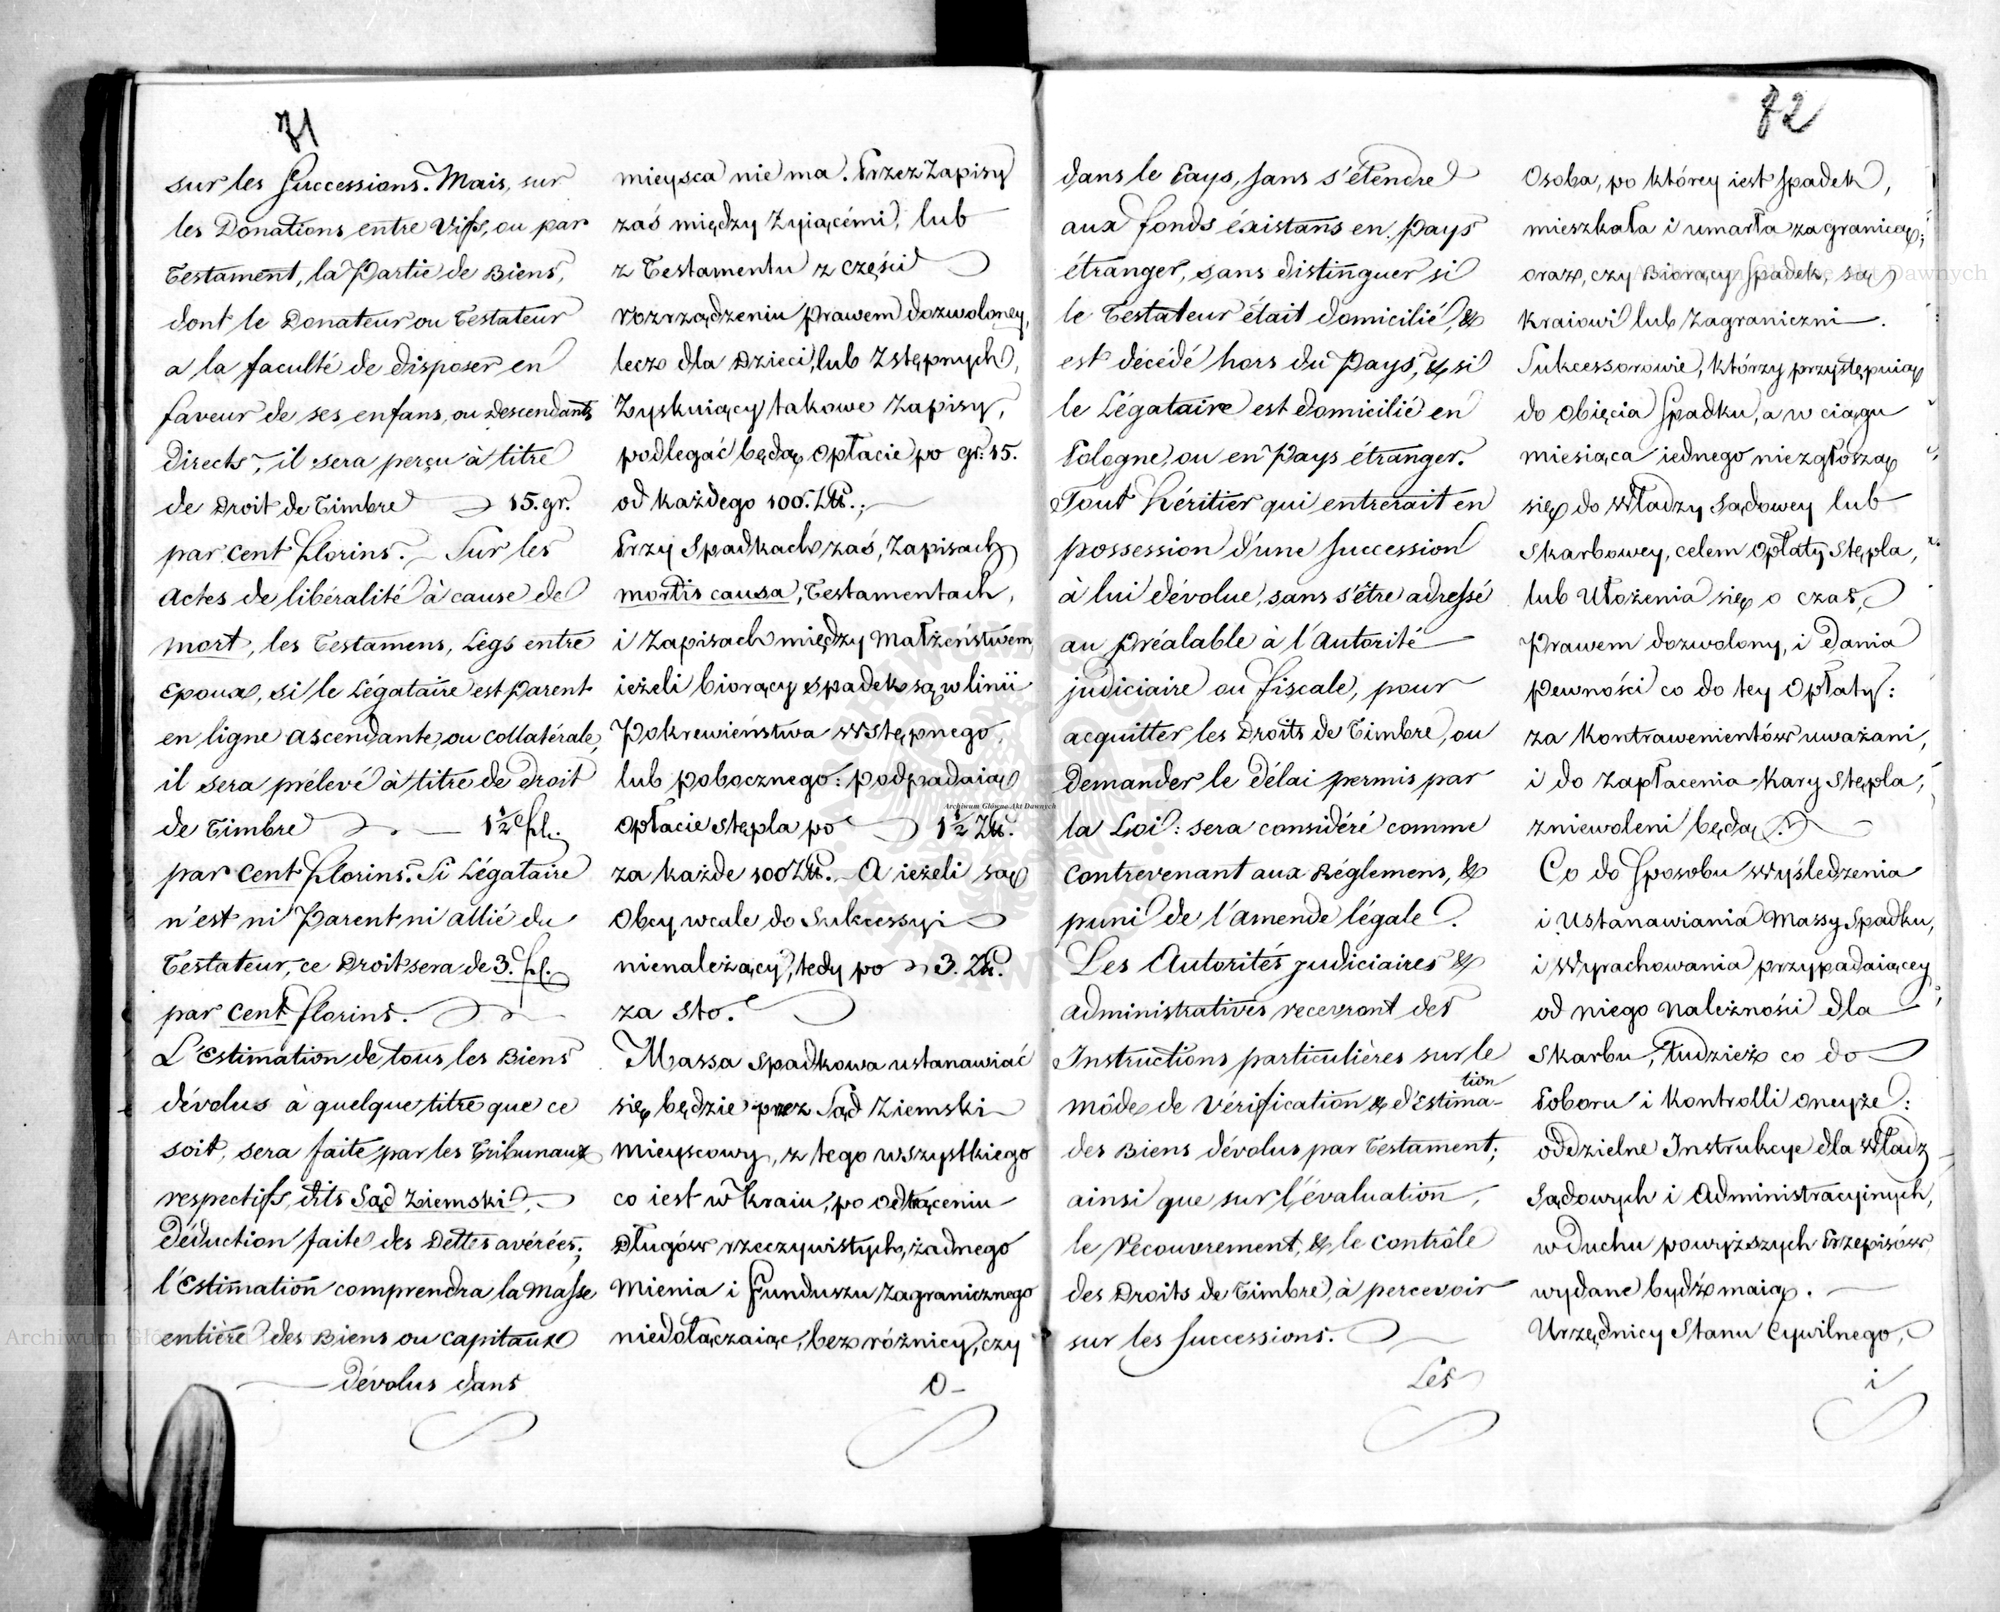 71
sur les Successions. Mais, sur
les Donations entre Vifs, ou par
Testament, la Partie de Biens,
dont le Donateur ou Testateur
a la faculté de disposer en
faveur de ses enfans, ou Descendants
directs, il sera perçu à titre
de Droit de Timbre 15. gr.
par cent florins. Sur les
actes de libéralité à cause de
mort, les Testamens, Légs entre
Epoux, si le Légataire est Parent
en ligne ascendante, ou collatérale,
il sera prélevé à titre de droit
de Timbre 1½ fl.
par cent florins. Si Légataire
n'est ni Parent ni allié du
Testateur, ce Droit sera de 3. fl.
par cent florins.
L'Estimation de tous les Biens
dévolus à quelque titre que ce
soit, sera faite par les Tribunaux
respectifs, dits Sąd Ziemski,
déduction faite des Dettes avérées;
l'Estimation comprendra la Masse
entière des Biens ou capitaux
dévolus dans
mieysca nie ma. Przez Zapisy
zaś między Zyiącémi, lub
z Testamentu z części
rozrządzeniu prawem dozwoloney,
lecz dla Dzieci, lub Zstępnych,
Zyskuiący takowe Zapisy,
podlegać będą Opłacie po gr. 15.
od każdego 100. Zł.;
Przy Spadkach zaś, Zapisach
mortis causa, Testamentach,
i Zapisach między Małżeństwem,
ieżeli biorący Spadek są w linii
Pokrewieństwa Wstępnego,
lub pobocznego: podpadaią
Opłacie stępla po 1½ Zł.
za każde 100 Zł. A ieżeli są
Obcy, wcale do Sukcessyi
nienależący, tedy po 3. Zł.
za Sto.
Massa Spadkowa ustanawiać
się będzie przez Sąd Ziemski
Mieyscowy, z tego wszystkiego
co iest w Kraiu, po odtrąceniu
Długów rzeczywistych, żadnego
Mienia i Funduszu zagranicznego
niedołączaiąc, bez różnicy, czy
O-
72
dans le Pays, sans s'étendre
aux fonds éxistans en Pays
étranger, sans distinguer si
le Testateur était domicilié, &
est décédé hors du Pays, & si
le Légataire est domicilié en
Pologne, ou en Pays étranger.
Tout héritier qui entrerait en
possession d'une succession
à lui dévolue, sans s'être adressé
au préalable à l'Autorité
judiciaire ou fiscale, pour
acquitter les Droits de Timbre, ou
demander le délai permis par
la Loi: sera considéré comme
contrevenant aux Réglemens, &
puni de l'amende légale.
Les Autorités judiciaires &
administratives recevront des
Instructions particulières sur le
môde de Vérification & d'Estimation
des Biens dévolus par Testament;
ainsi que sur l'évaluation,
le recouvrement, & le contrôle
des Droits de Timbre, à percevoir
sur les Successions.
Les
Osoba, po którey iest Spadek,
mieszkała i umarła za granicą;
oraz, czy Biorący Spadek, są
Kraiowi lub Zagraniczni.
Sukcessorowie, którzy przystępuią
do Obięcia Spadku, a w ciągu
miesiąca iednego niezgłoszą
się do Władzy Sądowey lub
Skarbowey, celem Opłaty Stępla,
lub Ułożenia się o czas,
Prawem dozwolony, i Dania
Pewności co do tey Opłaty:
za Kontrawenientów uważani,
i do Zapłacenia Kary Stępla,
zniewoleni będą.
Co do Sposobu Wyśledzenia
i Ustanawiania Massy Spadku,
i Wyrachowania przypadaiącey
od niego należności dla
Skarbu, tudzież co do
Poboru i Kontrolli oneyże:
oddzielne Instrukcye dla Władz
Sądowych i Administracyinych,
w Duchu powyższych Przepisów,
wydane bydź maią.
Urzędnicy Stanu Cywilnego,
i
Archiwum Główne Akt Dawnych